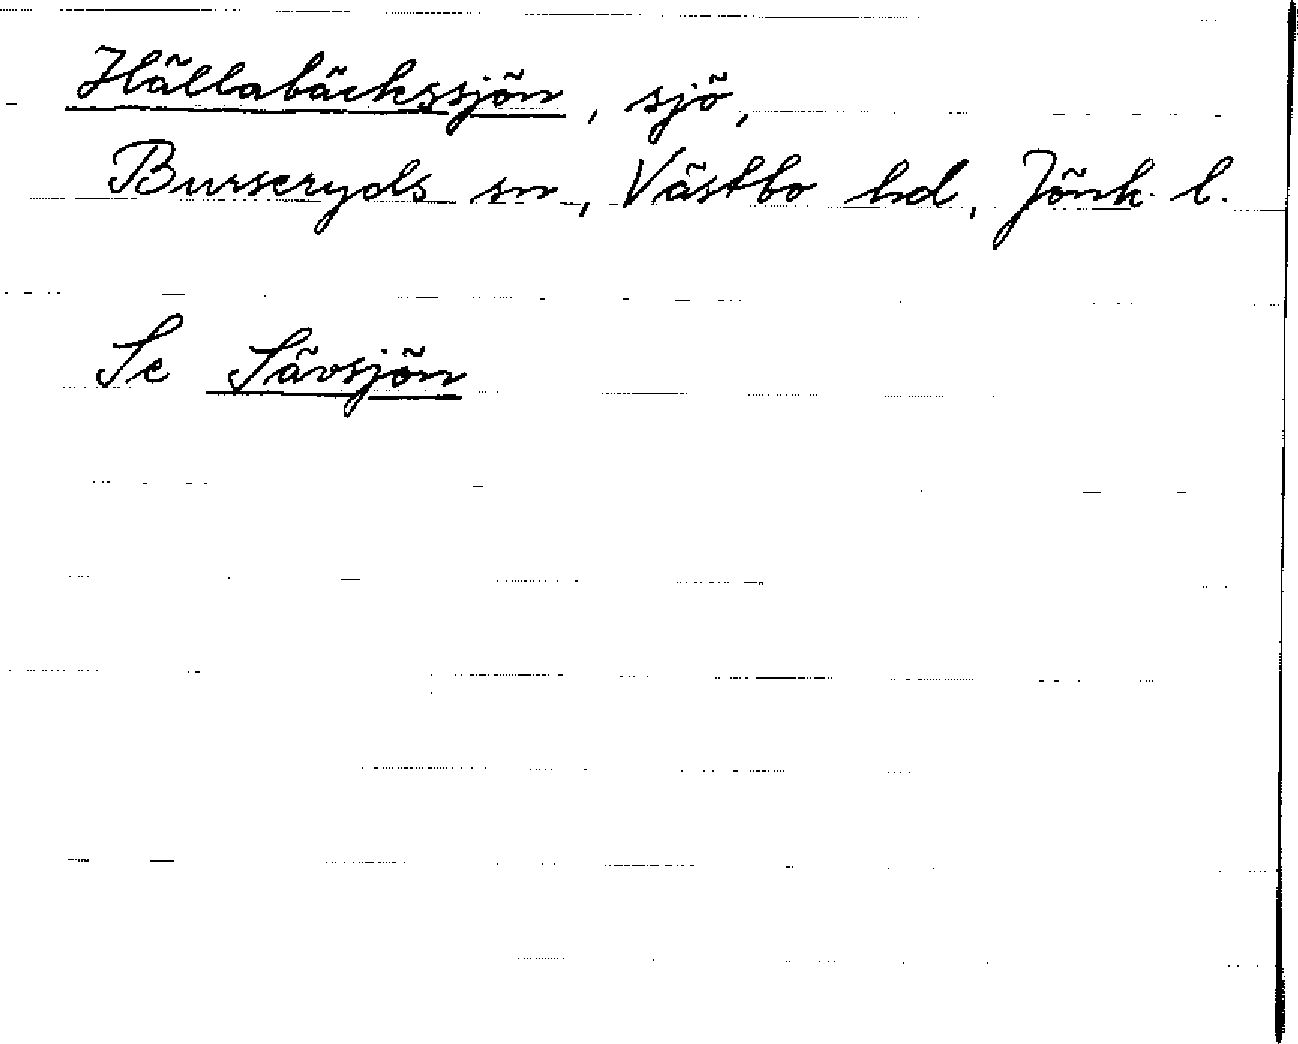 Hällabäckssjön, sjö,
Burseryds sn, Västbo hd, Jönk. l.
Se Sävsjön